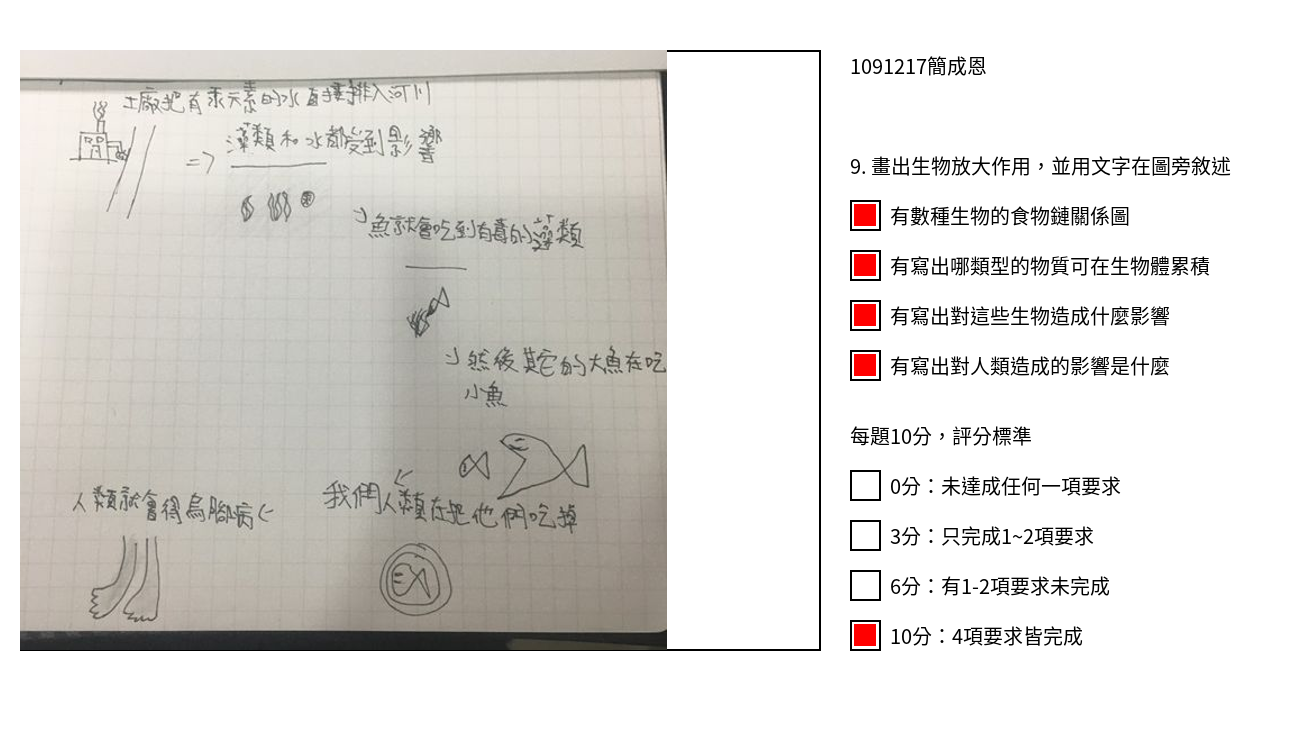 工廠把有汞元素的水直接排入河川
=> 藻類和水都受到影響
魚就會吃到有毒的藻類
然後其它的大魚在吃
小魚
我們人類在把他們吃掉
人類就會得烏腳病
1091217簡成恩
9. 畫出生物放大作用，並用文字在圖旁敘述
有數種生物的食物鏈關係圖
有寫出哪類型的物質可在生物體累積
有寫出對這些生物造成什麼影響
有寫出對人類造成的影響是什麼
每題10分，評分標準
0分：未達成任何一項要求
3分：只完成1~2項要求
6分：有1-2項要求未完成
10分：4項要求皆完成